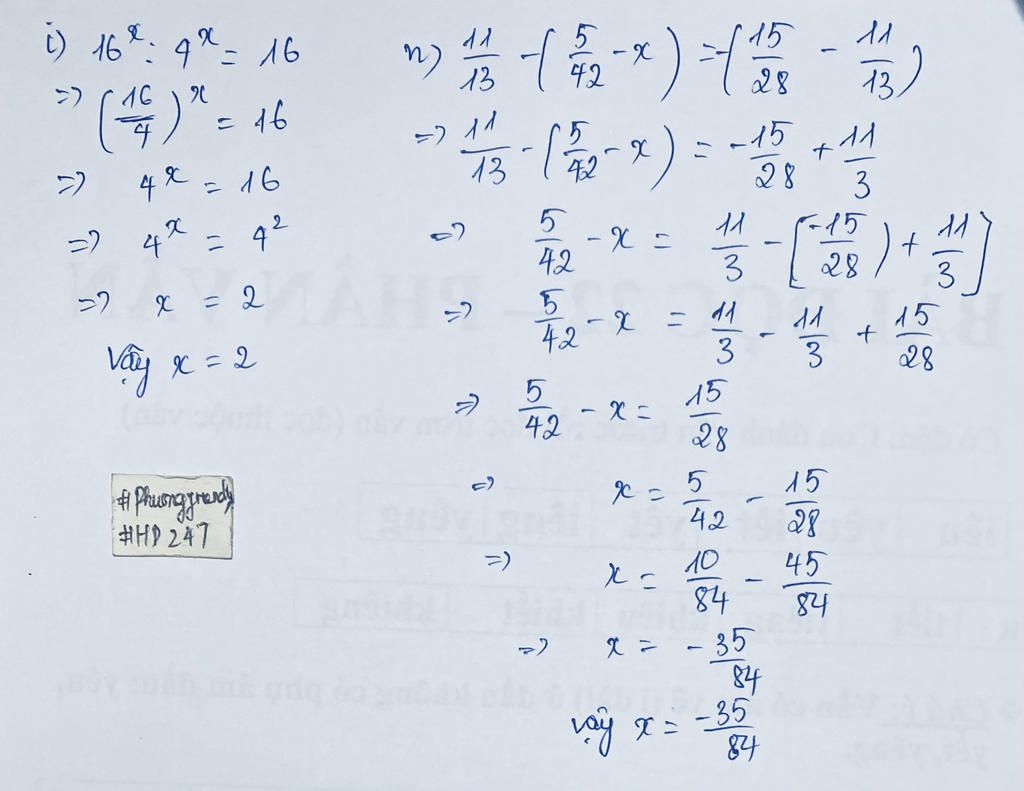 i) 16^x : 4^x = 16
=> (16/4)^x = 16
=> 4^x = 16
=> 4^x = 4^2
=> x = 2
Vậy x = 2
#Phuonggrandy
#HD247
n) 11/13 - (5/42 - x) = -(15/28 - 11/13)
=> 11/13 - (5/42 - x) = -15/28 + 11/3
=> 5/42 - x = 11/3 - [(-15/28) + 11/3]
=> 5/42 - x = 11/3 - 11/3 + 15/28
=> 5/42 - x = 15/28
=> x = 5/42 - 15/28
=> x = 10/84 - 45/84
=> x = -35/84
vậy x = -35/84